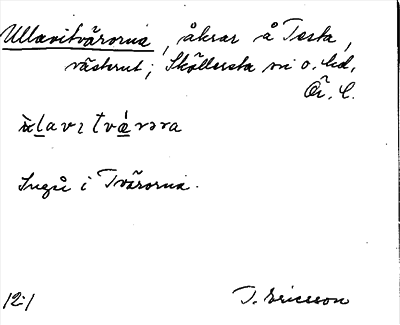 Ullavitvärorna, åkrar å Testa,
västerut; Sköllersta sn o. hd,
Ör. l.
Ingå i Tvärorna.
12:1 J. Ericsson